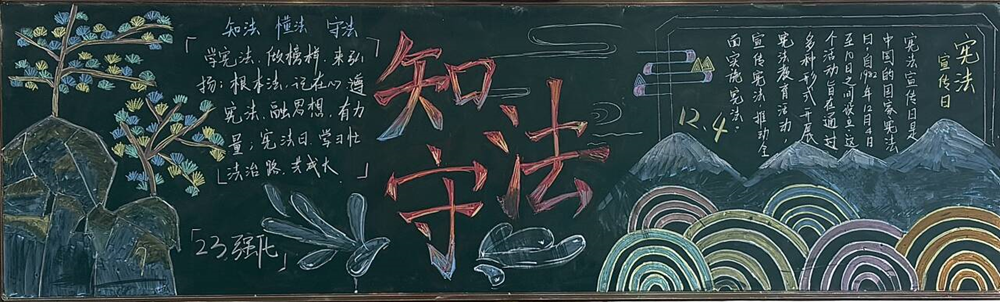 知法 懂法 守法
「学宪法、做榜样,来弘」
扬;根本法,记在心,遵
宪法、融思想、有力
量;宪法日、学习忙
法治路、共成长。
「23强化」
知
守
法
12.4
宪法
宣传日
宪法宣传日是
中国的国家宪法
日,自1982年12月4日
日之间设立,这
个活动旨在通过
多种形式开展
宪法教育活动,
宣传宪法,推动全
面实施宪法。